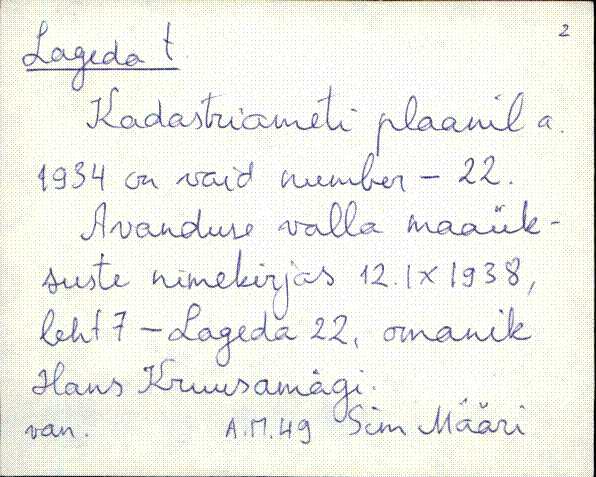 2
Lageda t.
Kadastriameti plaanil a.
1934 on vaid number – 22.
Avanduse valla maaük-
suste nimekirjas 12.IX 1938,
leht 7 – Lageda 22, omanik
Hans Kruusamägi.
van. A.M.49 Sim Määri